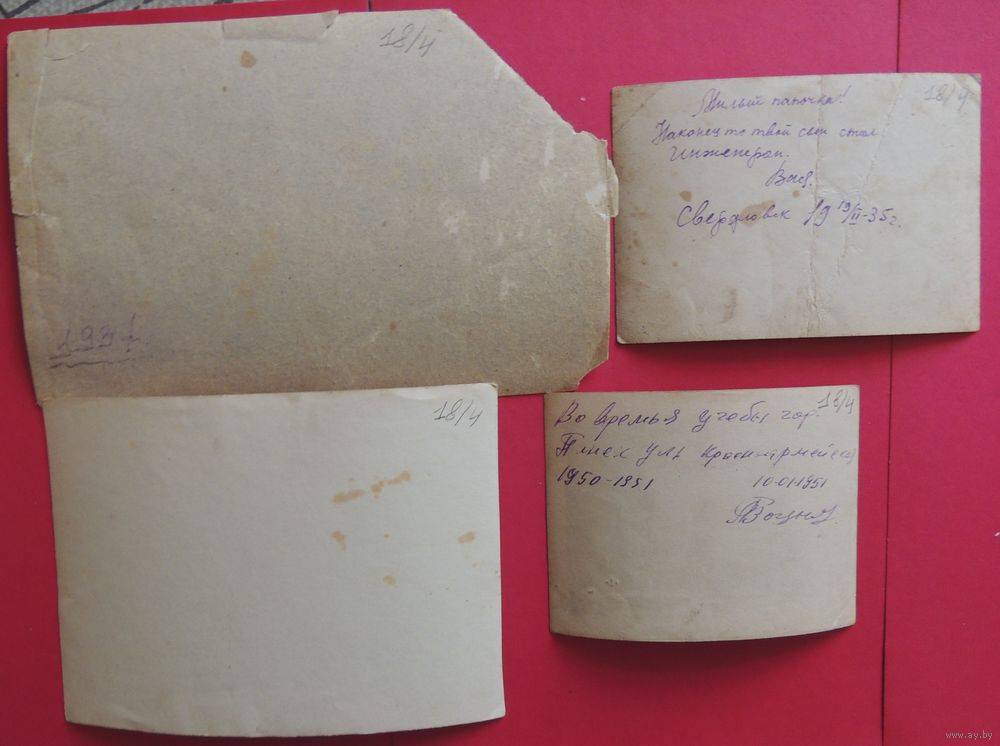 18/4
193
18/4
Милый папочка!
Наконец то твой сын стал
инженером.
Вася.
Свердловск 19 19/II-35 г.
18/4
18/4
Во время учебы гор.
Пинск ул. Красноармейская
1950-1951 10-01-1951
www.ay.by